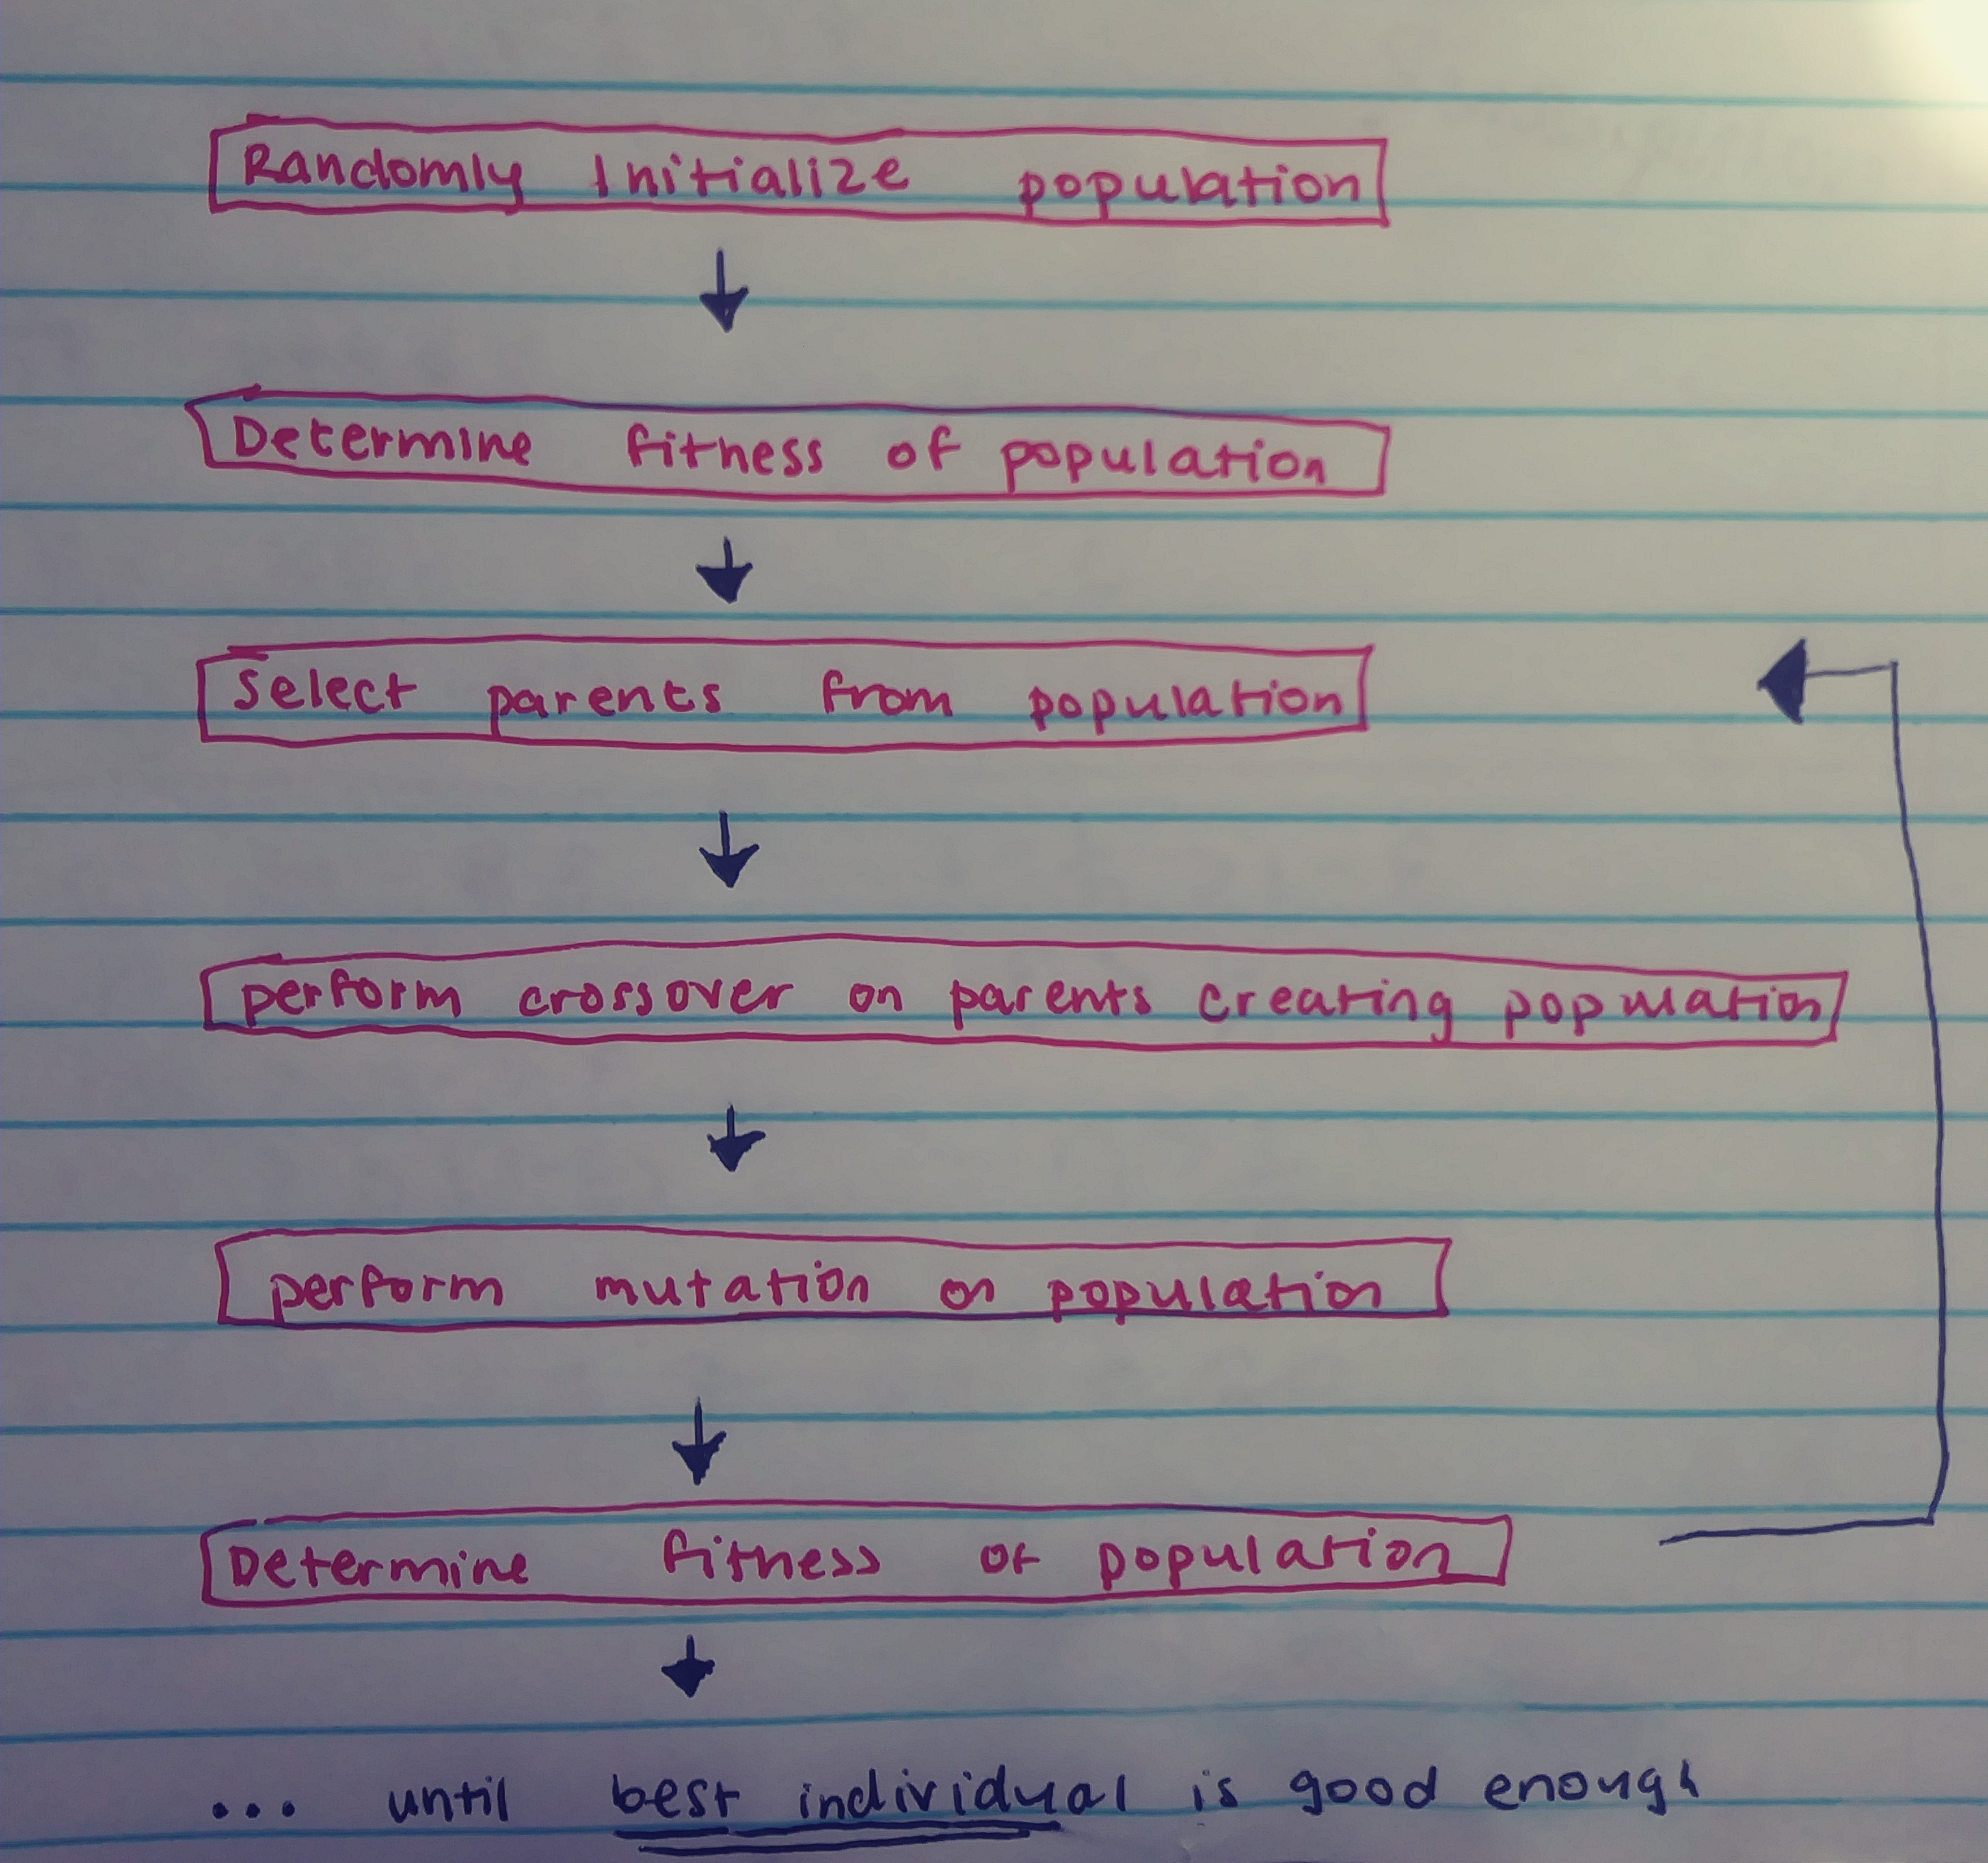 Randomly Initialize population
Determine fitness of population
Select parents from population
perform crossover on parents creating population
perform mutation on population
Determine fitness of population
... until best individual is good enough